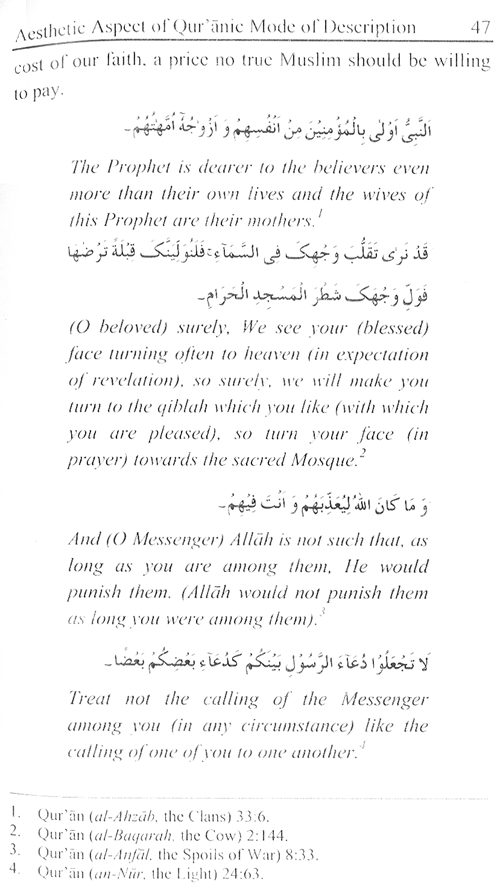 Aesthetic Aspect of Qur'ānic Mode of Description 47
cost of our faith, a price no true Muslim should be willing
to pay.
اَلنَّبِیُّ اَوْلٰی بِالْمُؤْمِنِیْنَ مِنْ اَنْفُسِهِمْ وَ اَزْوَاجُهٗۤ اُمَّهٰتُهُمْ۔
The Prophet is dearer to the believers even
more than their own lives and the wives of
this Prophet are their mothers.1
قَدْ نَرٰی تَقَلُّبَ وَجْهِکَ فِی السَّمَآءِ ۚ فَلَنُوَلِّیَنَّکَ قِبْلَةً تَرْضٰهَا
فَوَلِّ وَجْهَکَ شَطْرَ الْمَسْجِدِ الْحَرَامِ۔
(O beloved) surely, We see your (blessed)
face turning often to heaven (in expectation
of revelation), so surely, we will make you
turn to the qiblah which you like (with which
you are pleased), so turn your face (in
prayer) towards the sacred Mosque.2
وَ مَا کَانَ اللّٰهُ لِیُعَذِّبَهُمْ وَ اَنْتَ فِیْهِمْ۔
And (O Messenger) Allāh is not such that, as
long as you are among them, He would
punish them. (Allāh would not punish them
as long you were among them).3
لَا تَجْعَلُوْا دُعَآءَ الرَّسُوْلِ بَیْنَکُمْ کَدُعَآءِ بَعْضِکُمْ بَعْضًا۔
Treat not the calling of the Messenger
among you (in any circumstance) like the
calling of one of you to one another.4
1. Qur'ān (al-Aḥzāb, the Clans) 33:6.
2. Qur'ān (al-Baqarah, the Cow) 2:144.
3. Qur'ān (al-Anfāl, the Spoils of War) 8:33.
4. Qur'ān (an-Nūr, the Light) 24:63.